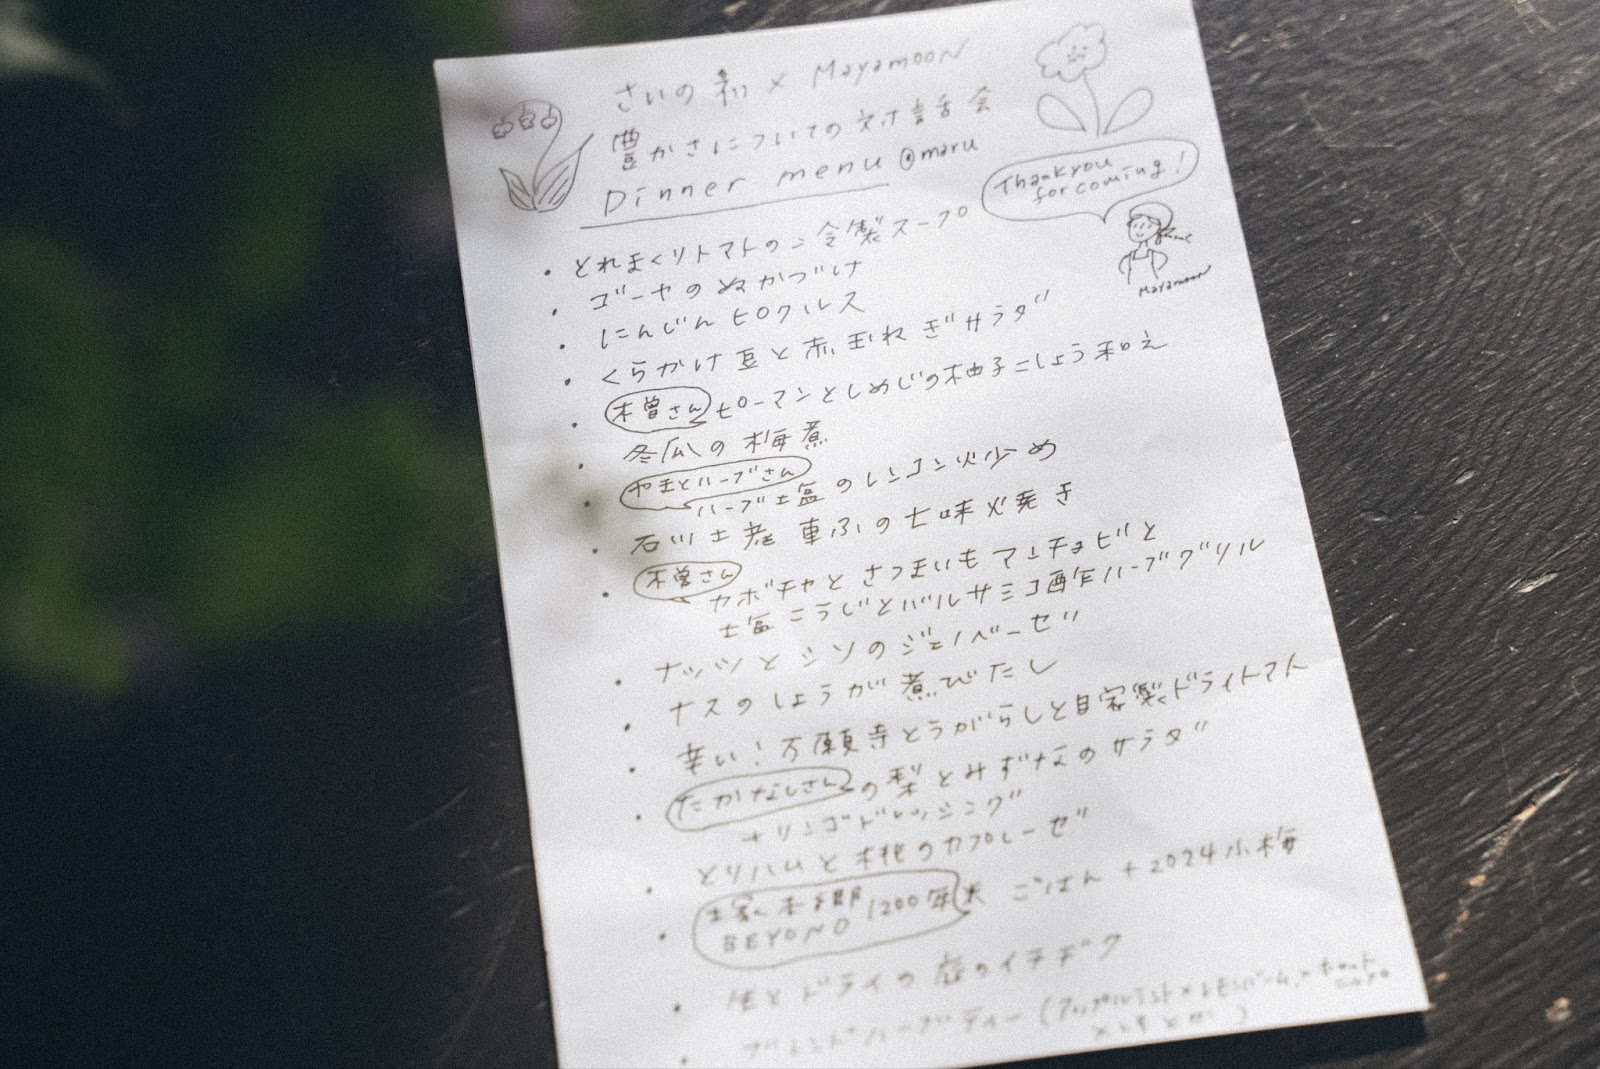 さいの和 × Mayamoon
豊かさについての対話会
Dinner menu @maru
Thank you
for coming!
Mayamoon
・とれまくりトマトの冷製スープ
・ゴーヤのぬかづけ
・にんじんピクルス
・くらかけ豆と赤玉ねぎサラダ
・木曽さん ピーマンとしめじの柚子こしょう和え
・冬瓜の梅煮
・やまとハーブさん
ハーブ塩のレンコン炒め
・石川土産 車ふの七味焼き
・木曽さん
カボチャとさつまいもアンチョビと
塩こうじとバルサミコ酢ハーブグリル
・ナッツとシソのジェノベーゼ
・ナスのしょうが煮びたし
・辛い!万願寺とうがらしと自家製ドライトマト
・たかなしさんの梨とみずなのサラダ
ナリンゴドレッシング
・とりハムと桃のカプレーゼ
・BEYOND 1200年米 ごはん + 2024小梅
・生とドライのイチヂク
・ハーブティー